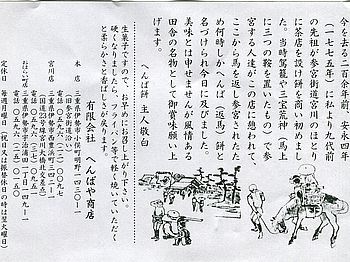 今を去る二百余年前、安永四年
(一七七五年)に私より九代前
の先祖が参宮街道宮川のほとり
に茶店を設け餅を商い初めまし
た。当時駕篭や三宝荒神(馬上
に三つの鞍を置いたもの)で参
宮する人達がこの店に憩われて、
ここから馬を返し参宮されたた
め何時しかへんば(返馬)餅と
名づけられ今日に及びました。
美味とは申せませんが風情ある
田舎の名物として御賞味願い上
げます。
へんば餅 主人敬白
生菓子ですので、お早めにお召し上り下さい。
硬くなりましたら、フライパン等で軽く焼いていただく
と柔らかさと香ばしさが戻ります。
有限会社 へんばや商店
本店 三重県伊勢市小俣町明野一四三〇ー一
(旧参宮街道沿い)
電話 〇五九六(二二)〇〇九七
宮川店
おはらい町店 三重県伊勢市宇治浦田一丁目一四九ー一
定休日 毎週月曜日(祝日又は振替休日の時は翌火曜日)